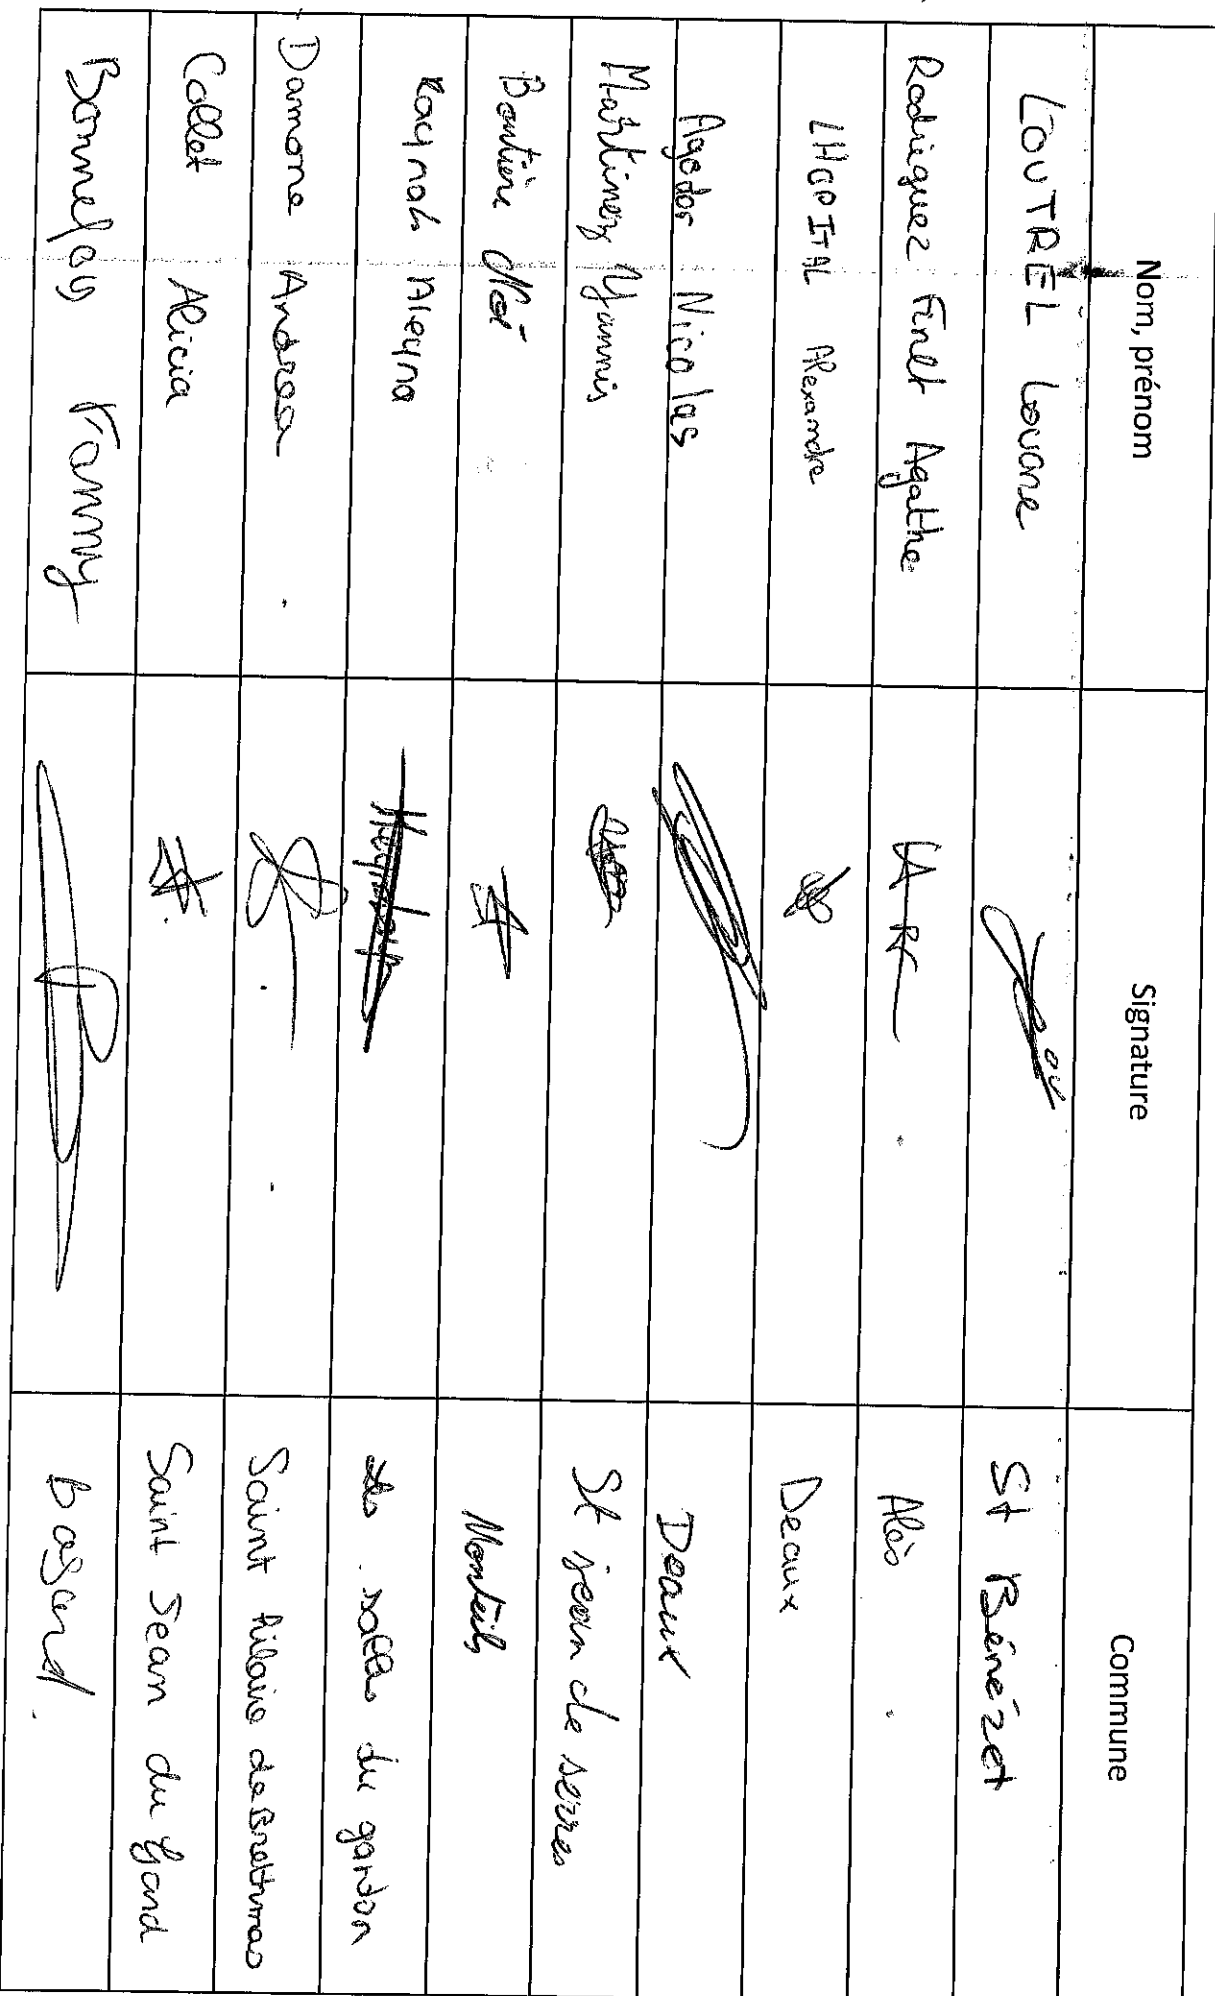 Nom, prénom Signature Commune
LOUTREL Louane St Bénézet
Rodriguez Finet Agathe Alès
LHOPITAL Alexandre Deaux
Agodor Nicolas Deaux
Martinez Yannis St jean de serres
Noé Monteils
Raynal Aleyna les salles du gardon
Damone Andrea Saint hilaire de Brethmas
Collet Alicia Saint Jean du Gard
Bonnefois Fanny bagard.